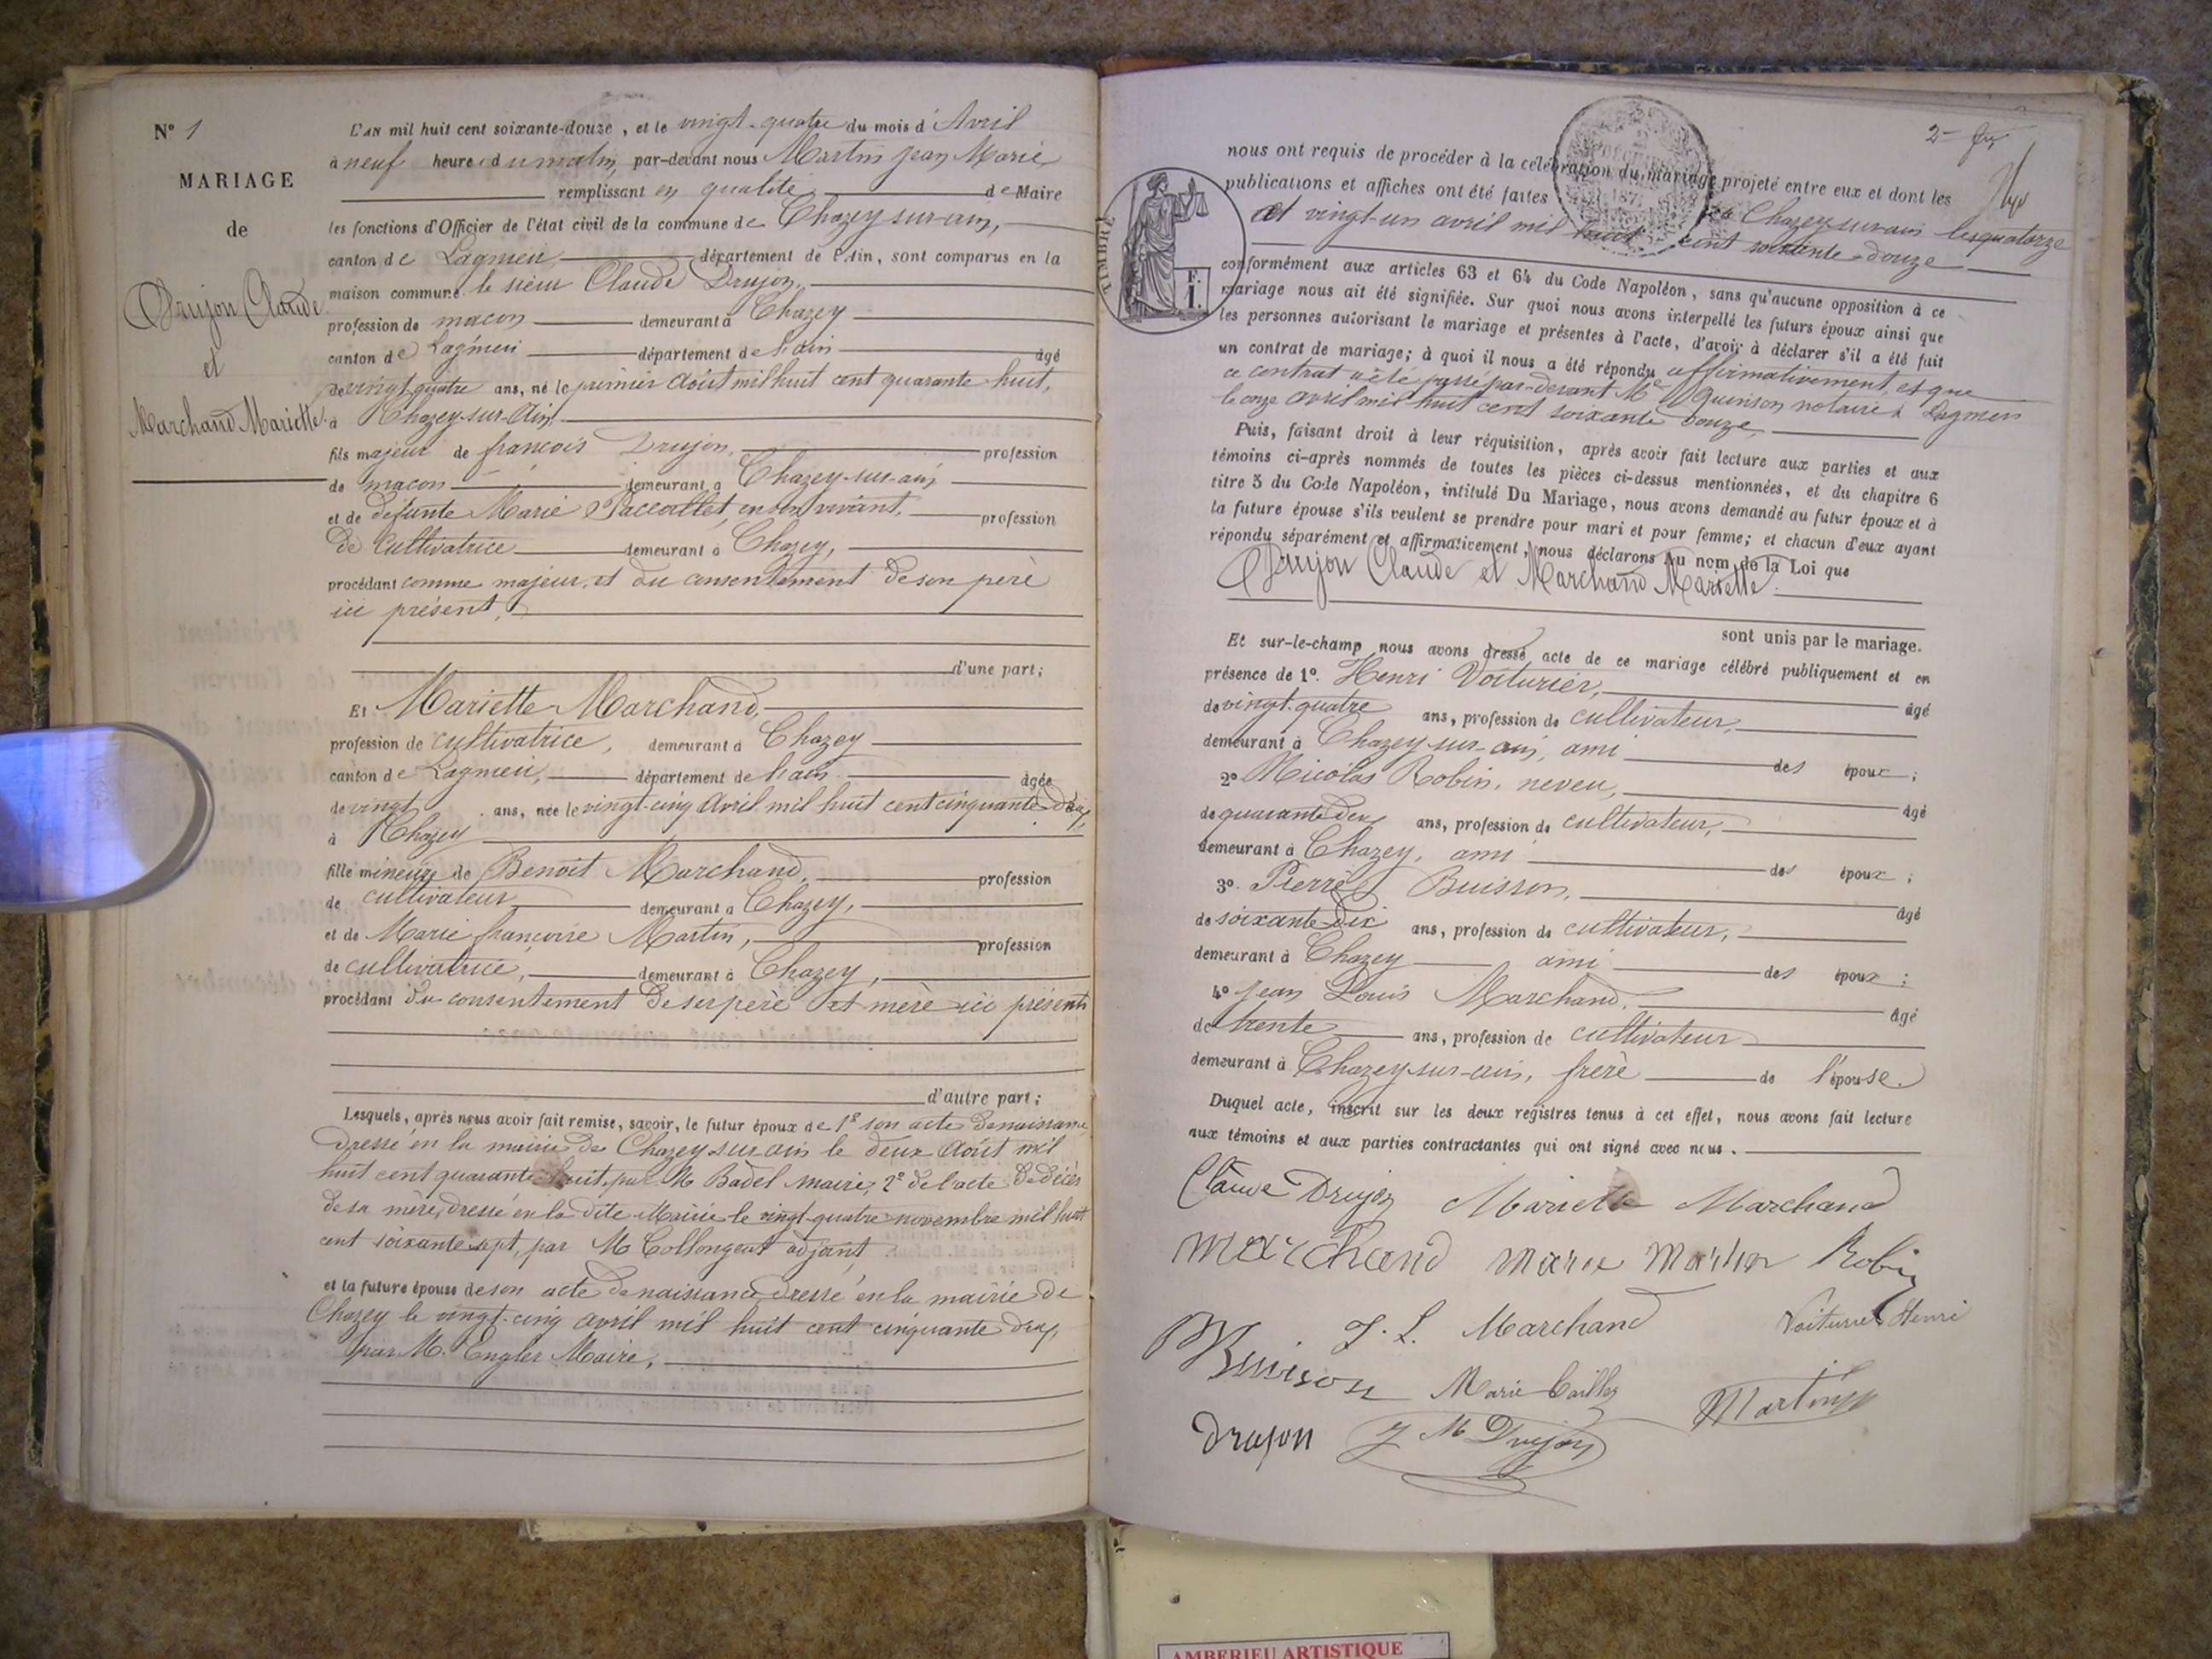 N° 1
MARIAGE
de
Drujon Claude
et
Marchand Mariette
L'AN mil huit cent soixante-douze, et le vingt-quatre du mois d'Avril
à neuf heures du matin, par-devant nous Martin Jean Marie
remplissant en qualité de Maire
les fonctions d'Officier de l'état civil de la commune de Chazey-sur-ain,
canton de Lagnieu département de l'Ain, sont comparus en la
maison commune le sieur Claude Drujon,
profession de macon demeurant à Chazey
canton de Lagnieu département de l'ain âgé
de vingt quatre ans, né le premier Août mil huit cent quarante huit,
à Chazey-sur-Ain,
fils majeur de francois Drujon, profession
de macon demeurant à Chazey-sur-ain
et de défunte Marie Paccallet, en son vivant, profession
de Cultivatrice demeurant à Chazey,
procédant comme majeur, et du consentement de son père
ici présent,
d'une part;
Et Mariette Marchand,
profession de cultivatrice, demeurant à Chazey
canton de Lagnieu, département de l'ain âgée
de vingt ans, née le vingt-cinq Avril mil huit cent cinquante-deux,
à Chazey
fille mineure de Benoit Marchand, profession
de cultivateur demeurant à Chazey,
et de Marie françoise Martin, profession
de cultivatrice, demeurant à Chazey,
procédant du consentement de ses père et mère ici présents
d'autre part;
Lesquels, après nous avoir fait remise, savoir, le futur époux de 1° son acte de naissance
dressé en la mairie de Chazey-sur-ain le deux Août mil
huit cent quarante-huit, par M Badel maire, 2° de l'acte de décès
de sa mère, dressé en la dite Mairie le vingt-quatre novembre mil huit
cent soixante sept, par M Collongeat adjoint,
et la future épouse de son acte de naissance dressé en la mairie de
Chazey le vingt-cinq avril mil huit cent cinquante deux,
par M. Engler Maire,
2
nous ont requis de procéder à la célébration du mariage projeté entre eux et dont les
publications et affiches ont été faites à Chazey-sur-ain les quatorze
et vingt-un avril mil huit cent soixante-douze
TIMBRE
F.
1.
conformément aux articles 63 et 64 du Code Napoléon, sans qu'aucune opposition à ce
mariage nous ait été signifiée. Sur quoi nous avons interpellé les futurs époux ainsi que
les personnes autorisant le mariage et présentes à l'acte, d'avoir à déclarer s'il a été fait
un contrat de mariage; à quoi il nous a été répondu affirmativement, et que
ce contrat a été passé par-devant Me Quinson notaire à Lagnieu
le onze avril mil huit cent soixante douze,
Puis, faisant droit à leur réquisition, après avoir fait lecture aux parties et aux
témoins ci-après nommés de toutes les pièces ci-dessus mentionnées, et du chapitre 6
titre 5 du Code Napoléon, intitulé Du Mariage, nous avons demandé au futur époux et à
la future épouse s'ils veulent se prendre pour mari et pour femme; et chacun d'eux ayant
répondu séparément et affirmativement, nous déclarons Au nom de la Loi que
Drujon Claude et Marchand Mariette.
sont unis par le mariage.
Et sur-le-champ nous avons dressé acte de ce mariage célébré publiquement et en
présence de 1°. Henri Voiturier, âgé
de vingt-quatre ans, profession de cultivateur,
demeurant à Chazey-sur-ain, ami des époux;
2° Nicolas Robin, neveu, âgé
de quarante deux ans, profession de cultivateur,
demeurant à Chazey, ami des époux;
3°. Pierre Buisson, âgé
de soixante dix ans, profession de cultivateur,
demeurant à Chazey ami des époux;
4° Jean Louis Marchand, âgé
de trente ans, profession de cultivateur
demeurant à Chazey-sur-ain, frère de l'épouse.
Duquel acte, inscrit sur les deux registres tenus à cet effet, nous avons fait lecture
aux témoins et aux parties contractantes qui ont signé avec nous.
Claude Drujon Mariette Marchand
Marchand Marie Martin Robin
J. L. Marchand Voiturier Henri
Buisson Marie Martin
Drujon J M Drujon
AMBERIEU ARTISTIQUE